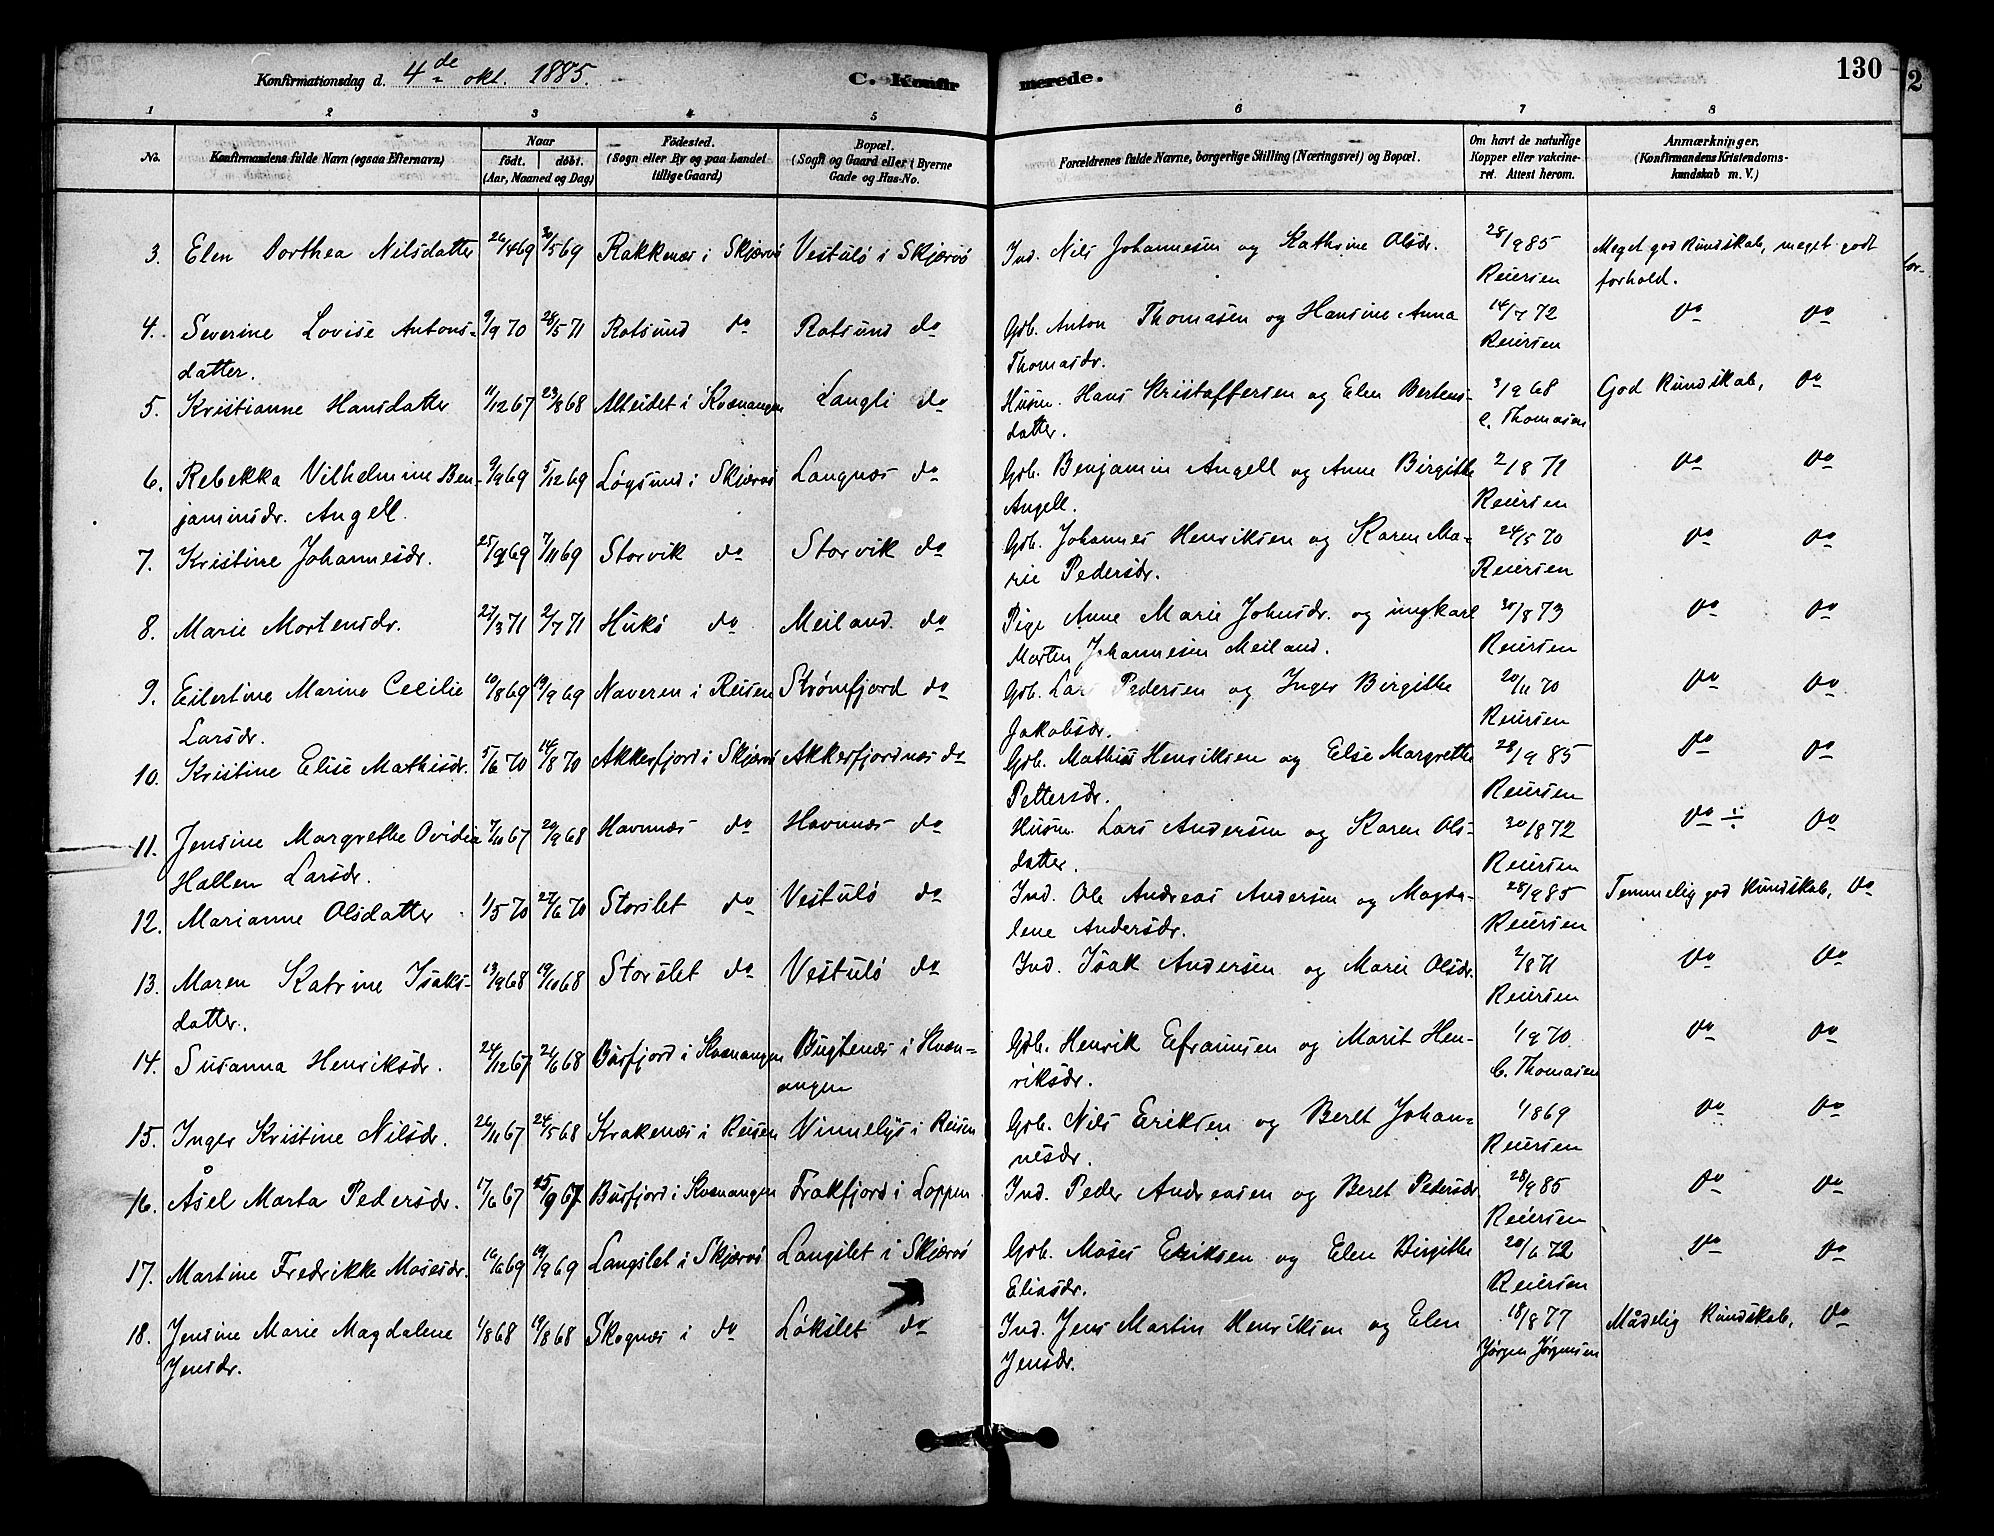 Konfirmationsdag d. 4de okt. 1885. C. Konfirmerede. 130
1 2 3 4 5 6 7 8
No. Konfirmandens fulde Navn (ogsaa Efternavn) Naar født. døbt. (Aar, Maaned og Dag) Fødested. (Sogn eller By og paa Landet tillige Gaard) Bopæl. (Sogn og Gaard eller i Byerne Gade og Hus-No. Forældrenes fulde Navne, borgerlige Stilling (Næringsvei) og Bopæl. Om havt de naturlige Kopper eller vakcineret. Attest herom. Anmærkninger. (Konfirmandens Kristendomskundskab m. V.)
3. Elen Dorthea Nilsdatter 26/4 69 30/5 69 Rakkenæs i Skjærvö Vestulö i Skjærvö Ind. Nils Johannesen og Kathrine Olsdr. 28/9 85 Meget god Kundskab, meget godt
Reiersen forhold.
4. Severine Lovise Antons- 9/9 70 28/5 71 Rotsund do Rotsund do Gdb. Anton Thomasen og Hansine Anna 14/7 72 do do
datter. Thomasdr. Reiersen
5. Kristianne Hansdatter 11/12 67 23/8 68 Alteidet i Kvænangen Langli do Husm. Hans Kristoffersen og Elen Bertens- 3/9 68 God Kundskab, do
datter. C. Thomasen
6. Rebekka Vilhelmine Ben- 9/9 69 5/12 69 Løgsund i Skjærvö Langnæs do Gdb. Benjamin Angell og Anne Birgitte 2/8 71 do do
jaminsdr. Angell. Angell. Reiersen
7. Kristine Johannesdr. 25/9 69 7/11 69 Storvik do Storvik do Gdb. Johannes Henriksen og Karen Ma- 24/5 70 do do
rie Pedersdr. Reiersen
8. Marie Mortensdr. 27/3 71 2/7 71 Hukö do Meiland. do Pige Anne Marie Johnsdr. og ungkarl 30/8 73 do do
Morten Johannesen Meiland. Reiersen
9. Eilertine Marina Cecilie 19/8 69 19/9 69 Naveren i Reisen Strømfjord do Gdb. Lars Pedersen og Inger Birgitte 20/11 70 do do
Larsdr. Jakobsdr. Reiersen
10. Kristine Elise Mathisdr. 5/6 70 14/8 70 Akkerfjord i Skjærvö Akkerfjordnæs do Gdb. Mathis Henriksen og Else Margrethe 28/9 85 do do
Pettersdr. Reiersen
11. Jensine Margrethe Ovidia 7/10 67 20/9 68 Havnnæs do Havnnæs do Husm. Lars Andersen og Karen Ols- 30/8 72 do ÷ do
Hallen Larsdr. datter. Reiersen
12. Marianne Olsdatter 1/5 70 27/6 70 Storslet do Vestulö do Ind. Ole Andreas Andersen og Magda- 28/9 85 Temmelig god Kundskab, do
lene Andersdr. Reiersen
13. Maren Katrine Isaks- 13/9 68 19/10 68 Storslet do Vestulö do Ind. Isak Andersen og Marie Olsdr. 2/8 71 do do
datter. Reiersen
14. Susanna Henriksdr. 24/12 67 21/6 68 Burfjord i Kvænangen Bugtenæs i Kvæn- Gdb. Henrik Efraimsen og Marit Hen- 1/9 70 do do
angen riksdr. C. Thomasen
15. Inger Kristine Nilsdr. 26/11 67 24/5 68 Krakenæs i Reisen Vinnelys i Reisen Gdb. Nils Eriksen og Beret Johan- 1/8 69 do do
nesdr. Reiersen
16. Åsel Marta Pedersdr. 17/6 67 15/9 67 Burfjord i Kvænangen Frakfjord i Loppen Ind. Peder Andreasen og Beret Pedersdr 28/9 85 do do
Reiersen
17. Martine Fredrikke Mosesdr. 16/6 69 19/9 69 Langslet i Skjærvö Langslet i Skjærvö Gdb. Moses Eriksen og Elen Birgitte 20/6 72 do do
Eliasdr. Reiersen
18. Jensine Marie Magdalene 1/8 68 19/8 68 Skognæs i do Løkslet do Ind. Jens Martin Henriksen og Elen 18/8 77 Mådelig Kundskab, do
Jensdr. Jensdr. Jørgen Jørgensen